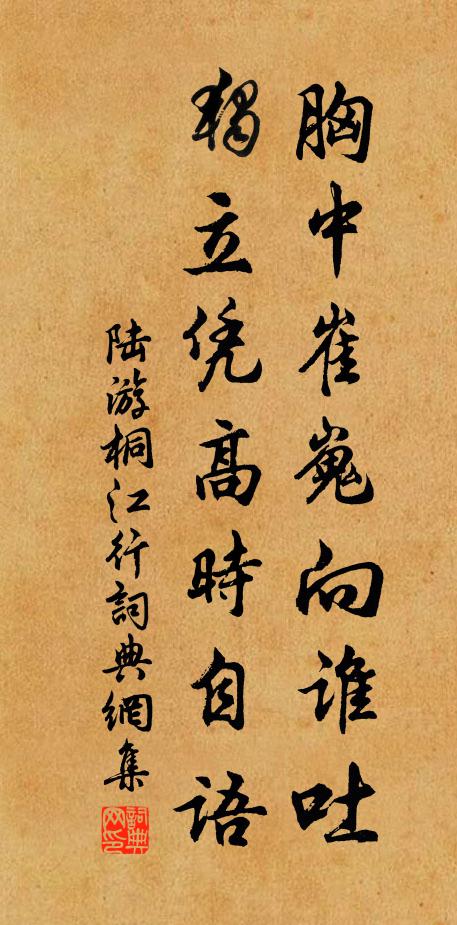 胸中崔嵬向谁吐
独立凭高時自语
陆游桐江行詞典網集
詞典网印